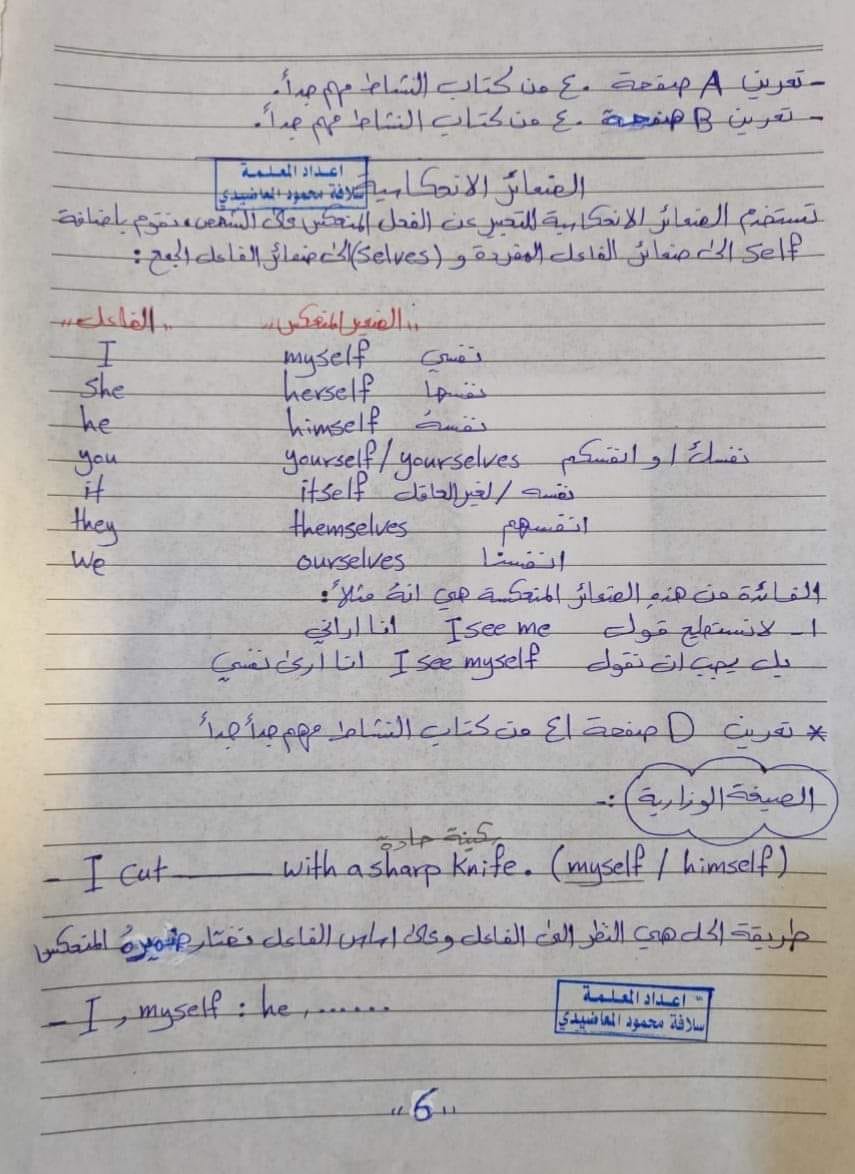 - تمرين A صفحة ٤٠ من كتاب النشاط مهم جداً.
- تمرين B صفحة ٤٠ من كتاب النشاط مهم جداً.
الضمائر الانعكاسية
اعداد المعلمة
سلافة محمود المعاضيدي
تستخدم الضمائر الانعكاسية للتعبير عن الفعل المنعكس على الشخص، نقوم باضافة
self الى ضمائر الفاعل المفردة و (selves) الى ضمائر الفاعل الجمع :
"الفاعل" "الضمير المنعكس"
I myself نفسي
she herself نفسها
he himself نفسهُ
you yourself/yourselves نفسك / او انفسكم
it itself نفسه / لغير العاقل
they themselves انفسهم
we ourselves انفسنا
الفائدة من هذهِ الضمائر المنعكسة هي انهُ مثلاً :
١- لا نستطيع قول I see me انا اراني
بل يجب ان نقول I see myself انا ارى نفسي
* تمرين D صفحة ٤١ من كتاب النشاط مهم جداً جداً
الصيغة الوزارية :-
سكينة حادة
- I cut ______ with a sharp knife. (myself / himself)
طريقة الحل هي النظر الى الفاعل وعلى اساس الفاعل نختار ضميرهُ المنعكس
- I, myself : he, ......
اعداد المعلمة
سلافة محمود المعاضيدي
"6"